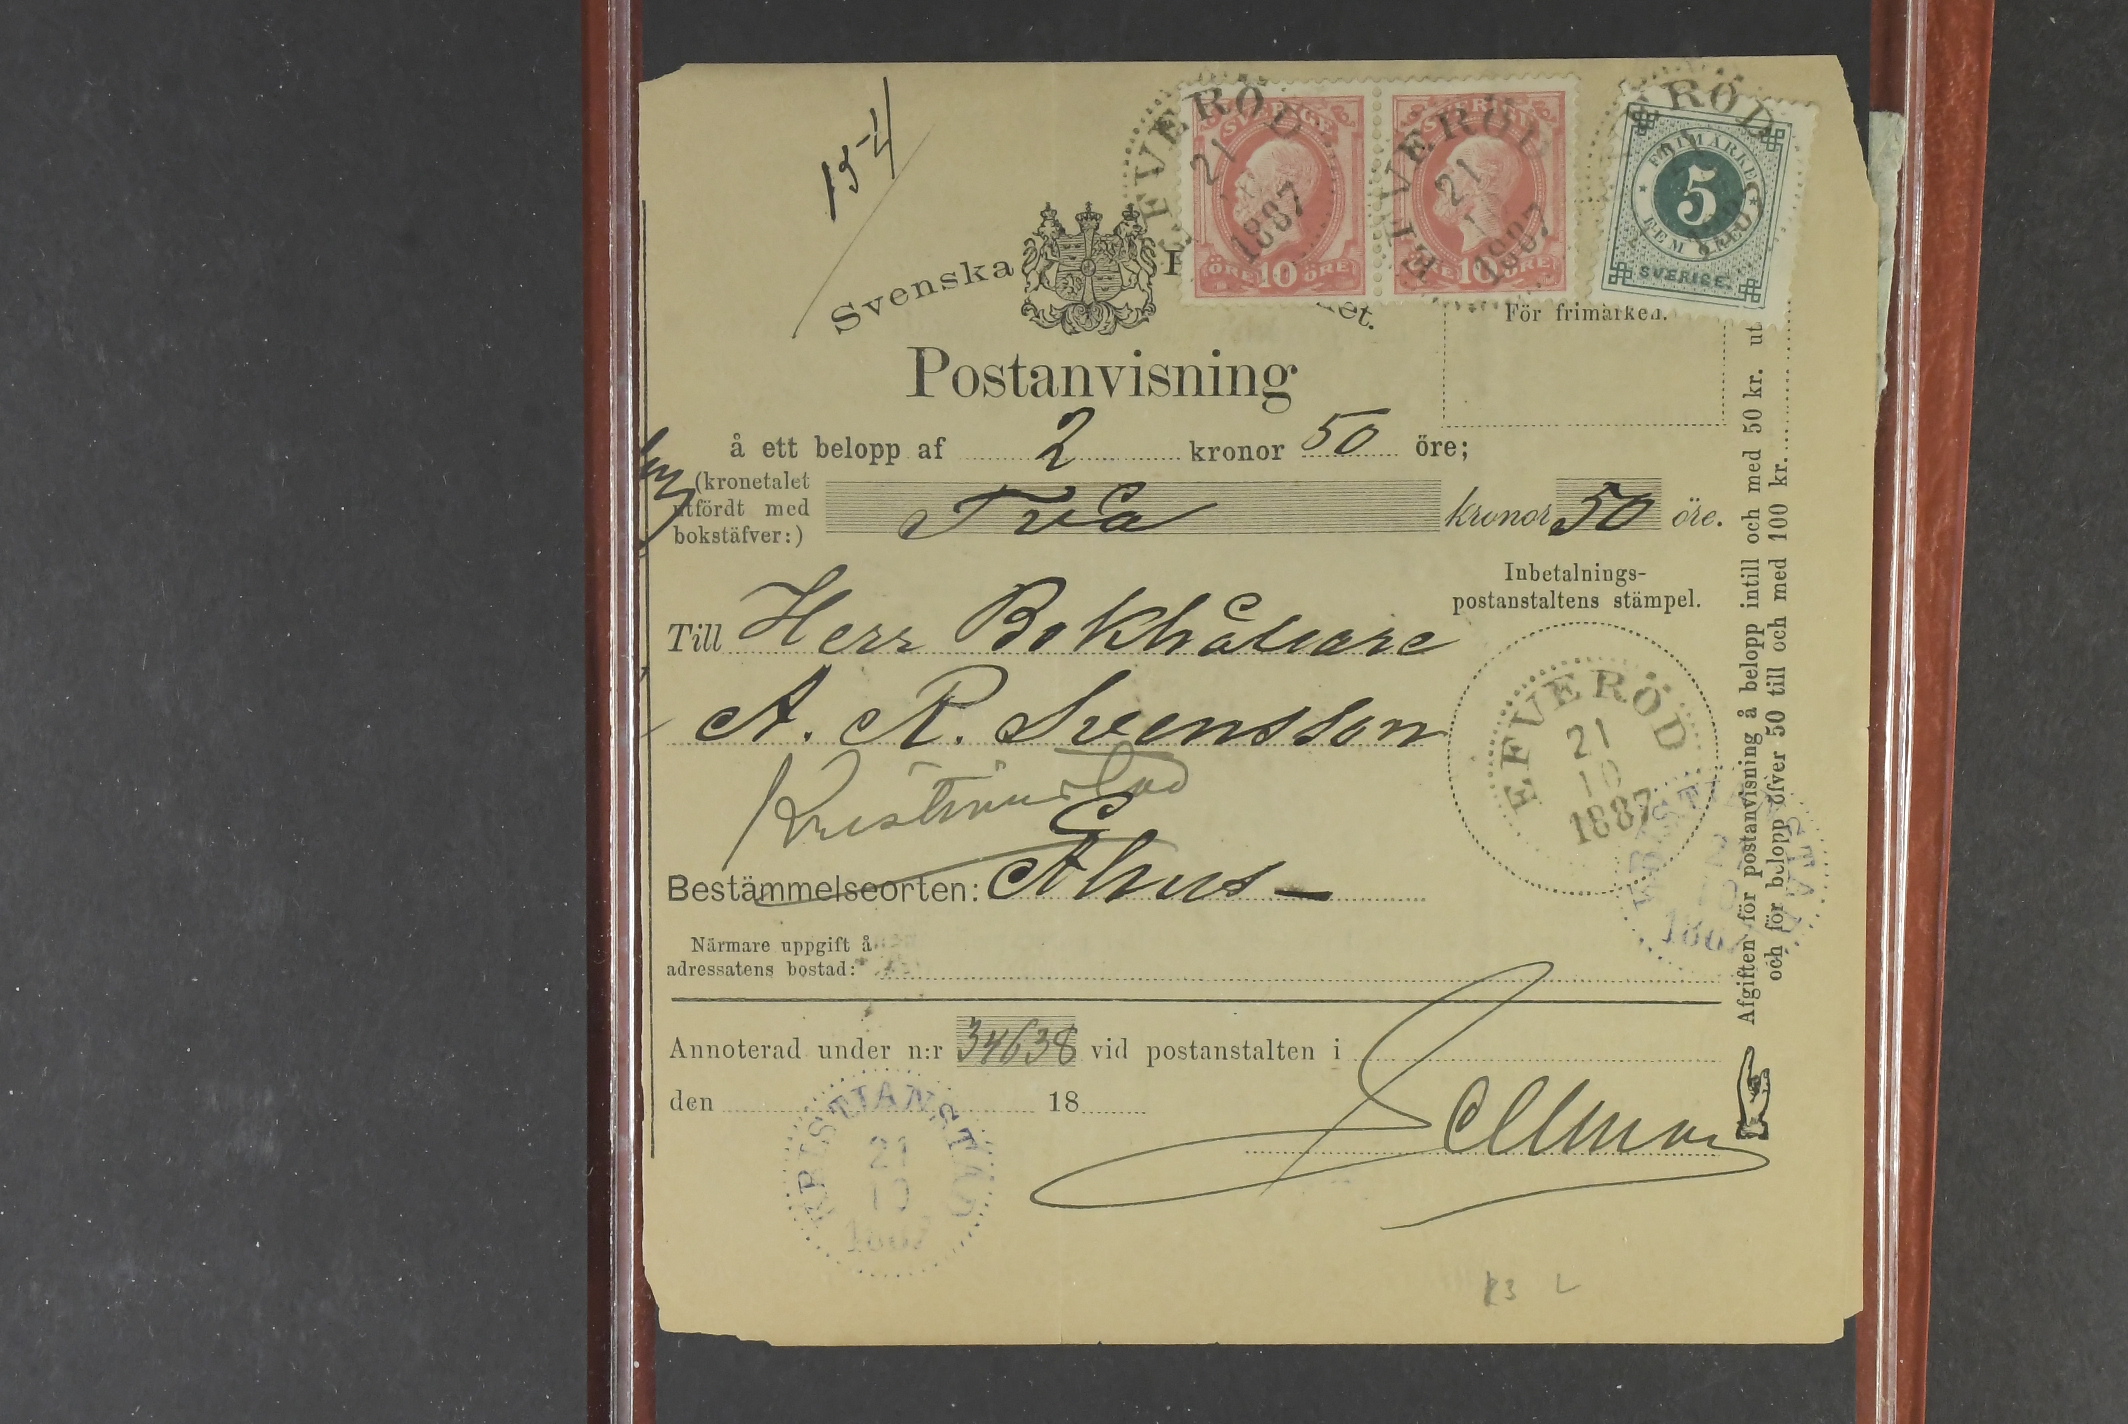 154
EFVERÖD
21
1887
SVERIGE
ÖRE 10 ÖRE
EFVERÖD
21
1887
SVERIGE
ÖRE 10 ÖRE
RÖD
FRIMÄRKE
5
FEM ÖRE
SVERIGE.
Svenska
et.
För frimärken.
Postanvisning
å ett belopp af 2 kronor 50 öre;
(kronetalet
utfördt med
bokstäfver:)
Två kronor 50 öre.
Inbetalnings-
postanstaltens stämpel.
Till Herr Bokhållare
A. R. Svensson
Kristianstad
EFVERÖD
21
10
1887
KRISTIANSTAD
21
10
1887
Bestämmelseorten: Åhus
Närmare uppgift å
adressatens bostad:
Annoterad under n:r 34638 vid postanstalten i
den 18
KRISTIANSTAD
21
10
1887
Afgiften för postanvisning å belopp intill och med 50 kr. ut
och för belopp öfver 50 till och med 100 kr.